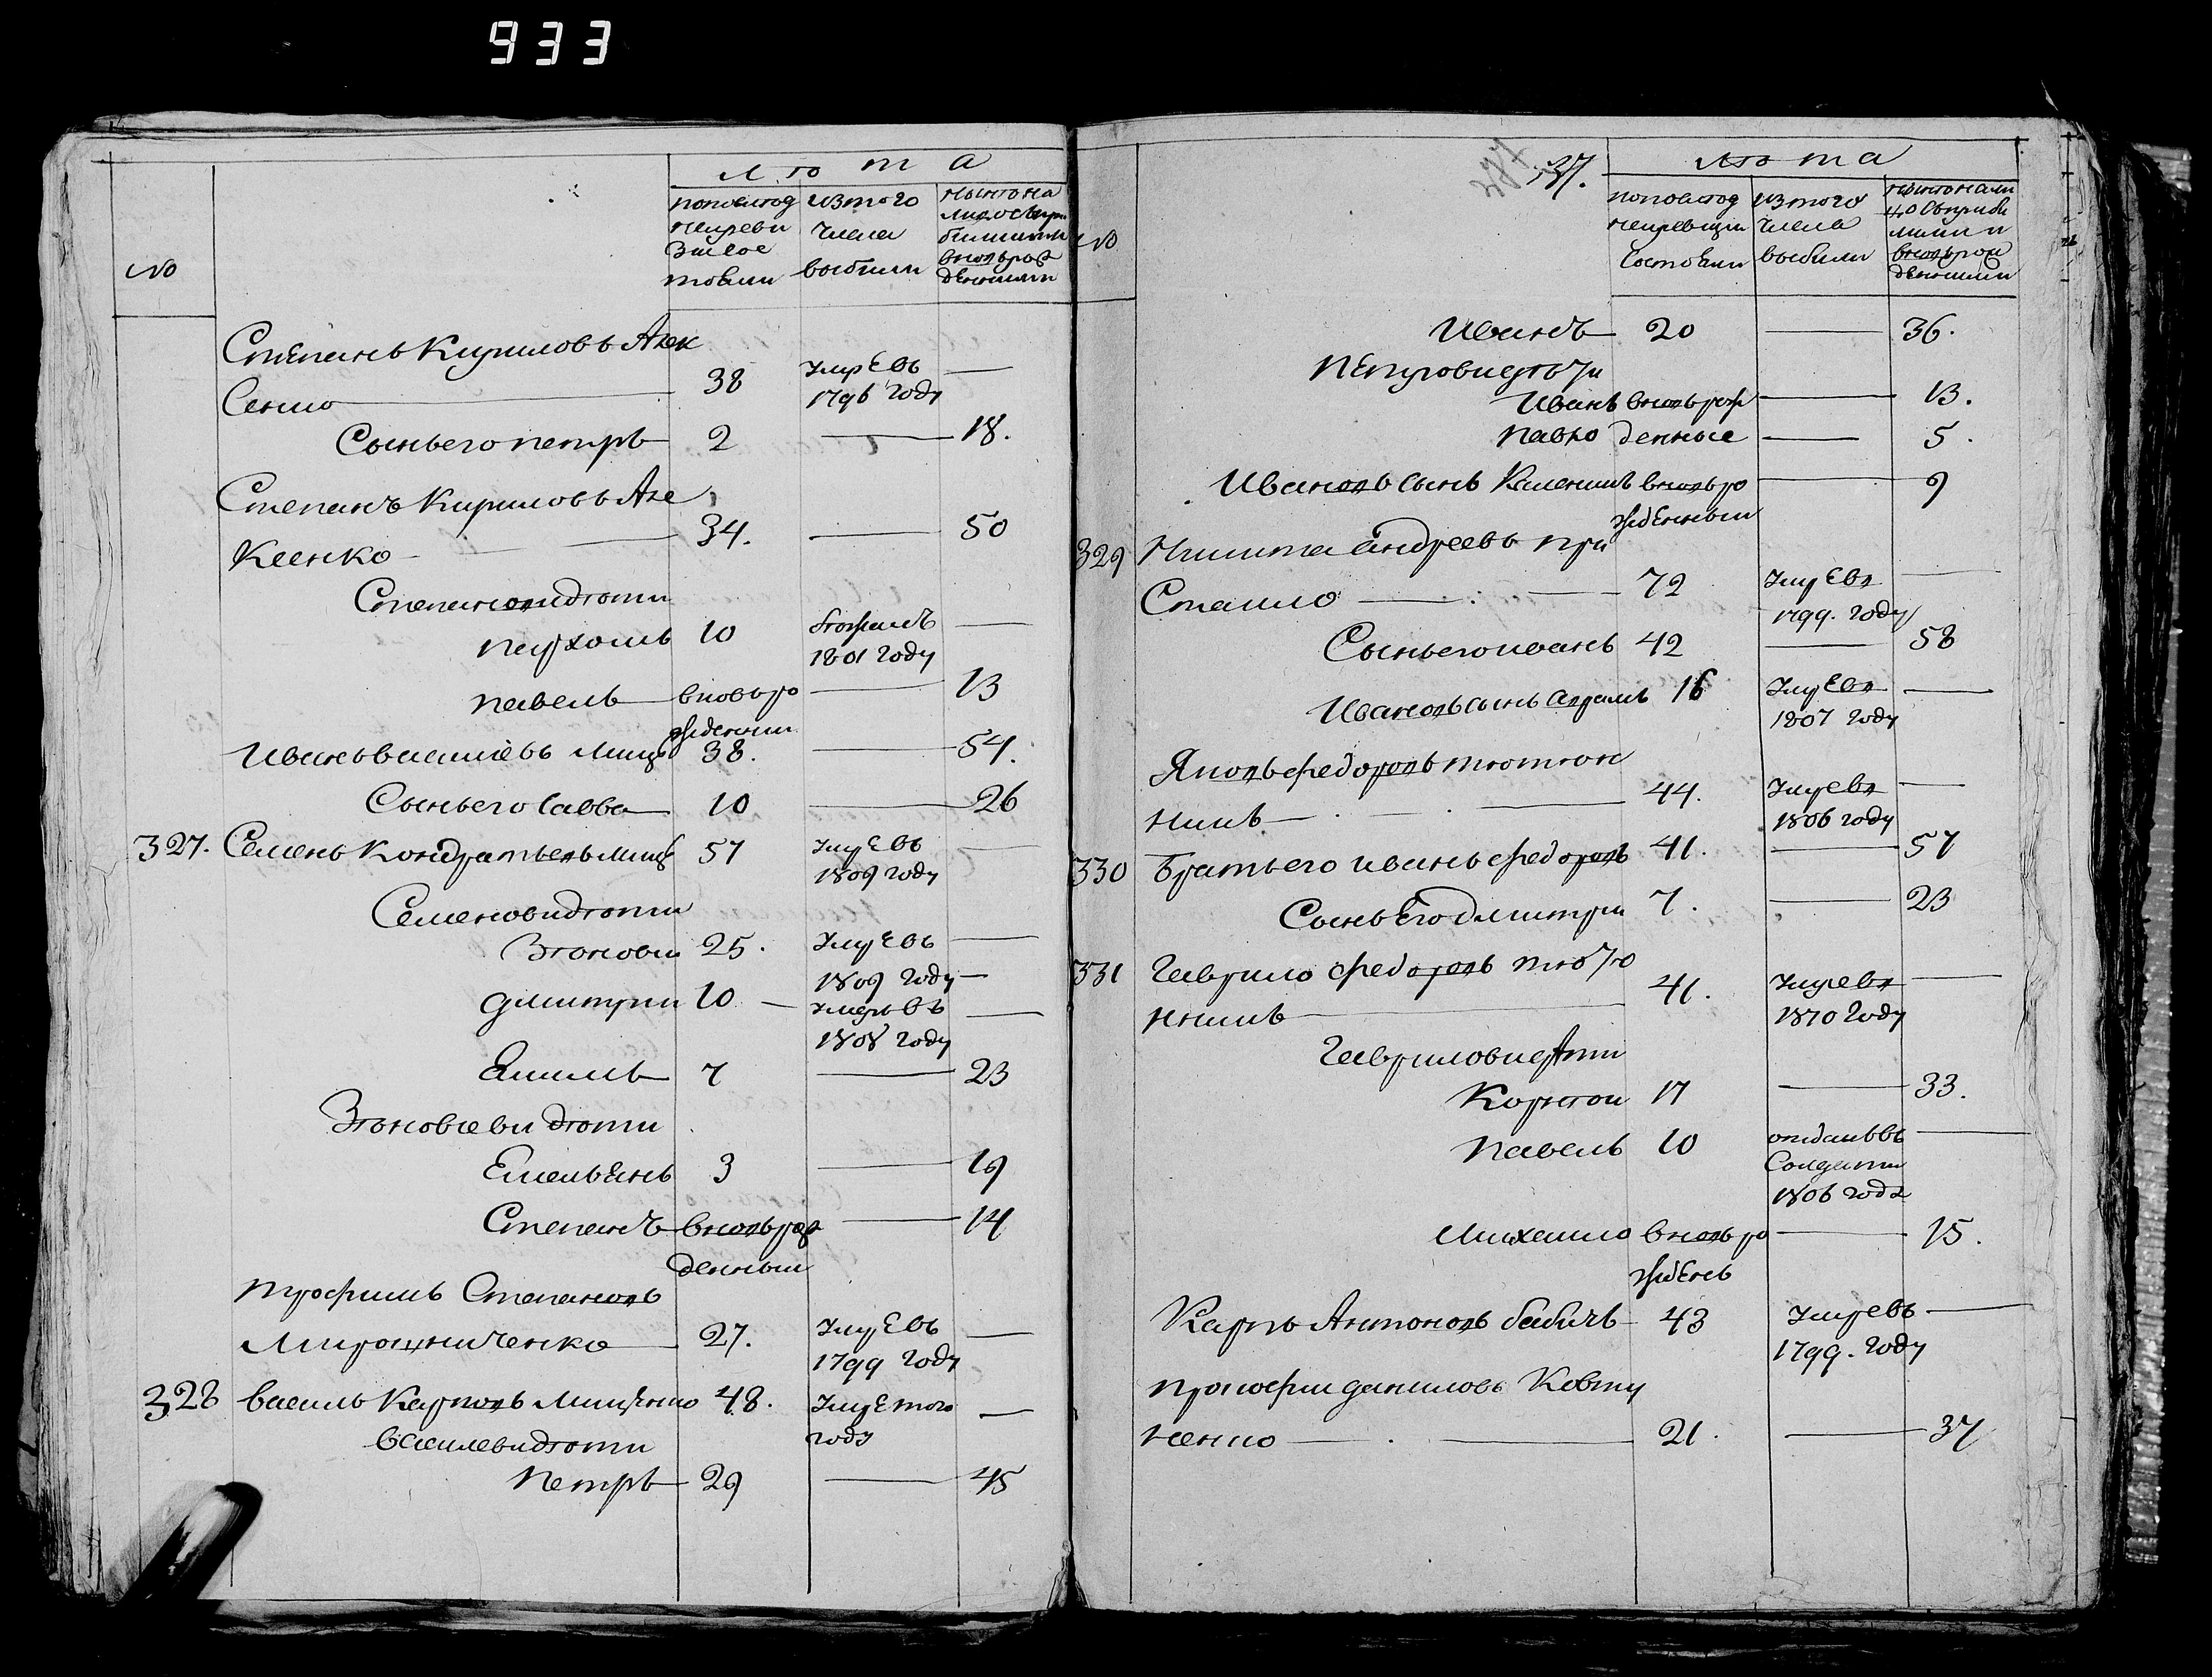 933
лѣта
№
попослед
ней реви
зіи сос
тояли
изтого
числа
выбыли
нынѣ на
лицо съ при
былыми и
вновь рож
денными
Степанъ Кириловъ Алек
сенко 38 умре въ —
1796 году
Сынъ его петръ 2 — 18.
Степанъ Кириловъ Але
ксенко 34. — 50
Степановы дѣти
пархомъ 10 бѣжалъ —
1801 году
павелъ вновь ро — 13
жденный
Иванъ васильевъ 38. — 54.
Сынъ его Савва 10 — 26
327. Семенъ Кондратьевъ 57 умре въ —
1809 году
Семеновы дѣти
Зѣновій 25. умре въ —
1809 году —
дмитрій 10 — умеръ въ —
1808 году
Екимъ 7 — 23
Зѣновіевы дѣти
Емельянъ 3 — 19
Степанъ вновь рож — 14
денный
трофимъ Степановъ
Мирошниченко 27. умре въ —
1799 году
328 василь Карповъ Мищенко 48. умре того —
году
василевы дѣти
Петръ 29 — 45
37.
лѣта
№
попослед
ней ревизіи
состояли
изтого
числа
выбыли
нынѣ нали
цо съ прибы
лыми и
вновь рож
денными
Иванъ 20 — 36.
Петровы дѣти
Иванъ вновь рож — 13.
павло денные — 5.
Ивановъ сынъ вновь ро — 9
жденный
329 Никита андреевъ При
72 умре въ —
1799. году
Сынъ его иванъ 42 — 58
Ивановъ сынъ абрамъ 16 умре въ —
1807 году
Яковъ федоровъ тютюн
никъ 44. умре въ —
1806 году
330 братъ его иванъ федоровъ 41. — 57
Сынъ Его дмитрій 7. — 23
331 Гаврило федоровъ тютю
нникъ 41. умре въ —
1810 году
Гавриловы дѣти
Корнѣй 17 — 33.
павелъ 10 отданъ въ —
Солдаты
1806 года
михайло вновь ро — 15.
жденъ
Карпъ Антоновъ бабичъ 43 умре въ —
1799. году
прокофій даниловъ Ковту
ненко 21. — 37